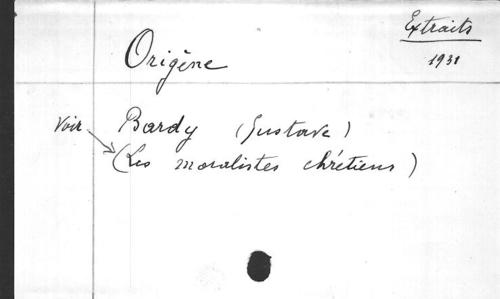 Extraits
Origène
1931
Voir Bardy (Gustave)
(Les moralistes chrétiens)